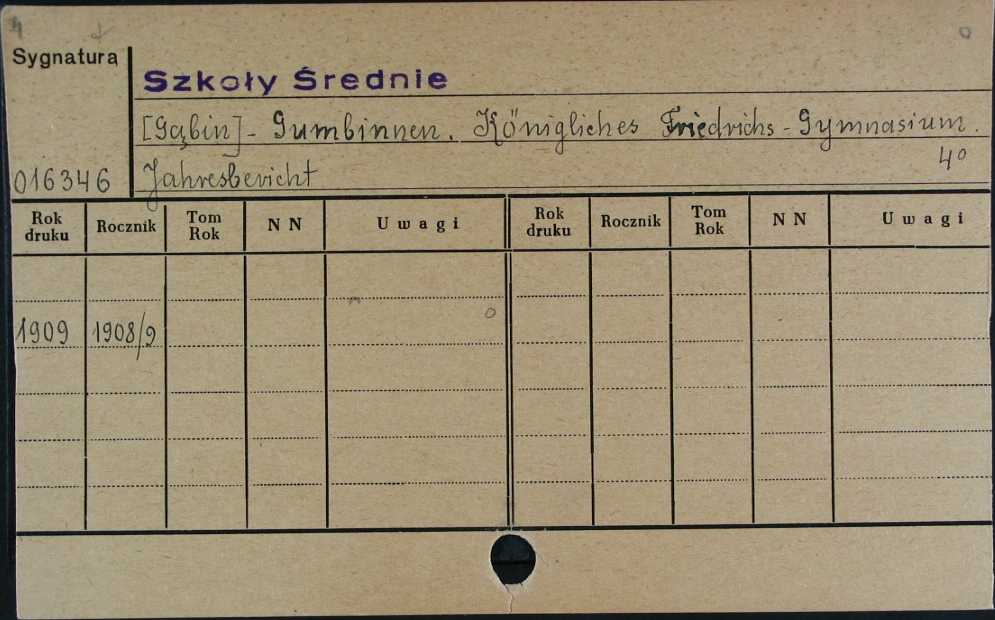 4
Sygnatura
Szkoły Średnie
[Gąbin] - Gumbinnen. Königliches Friedrichs-Gymnasium.
4°
016346 Jahresbericht
Rok druku Rocznik Tom Rok N N Uwagi Rok druku Rocznik Tom Rok N N Uwagi
1909 1908/9